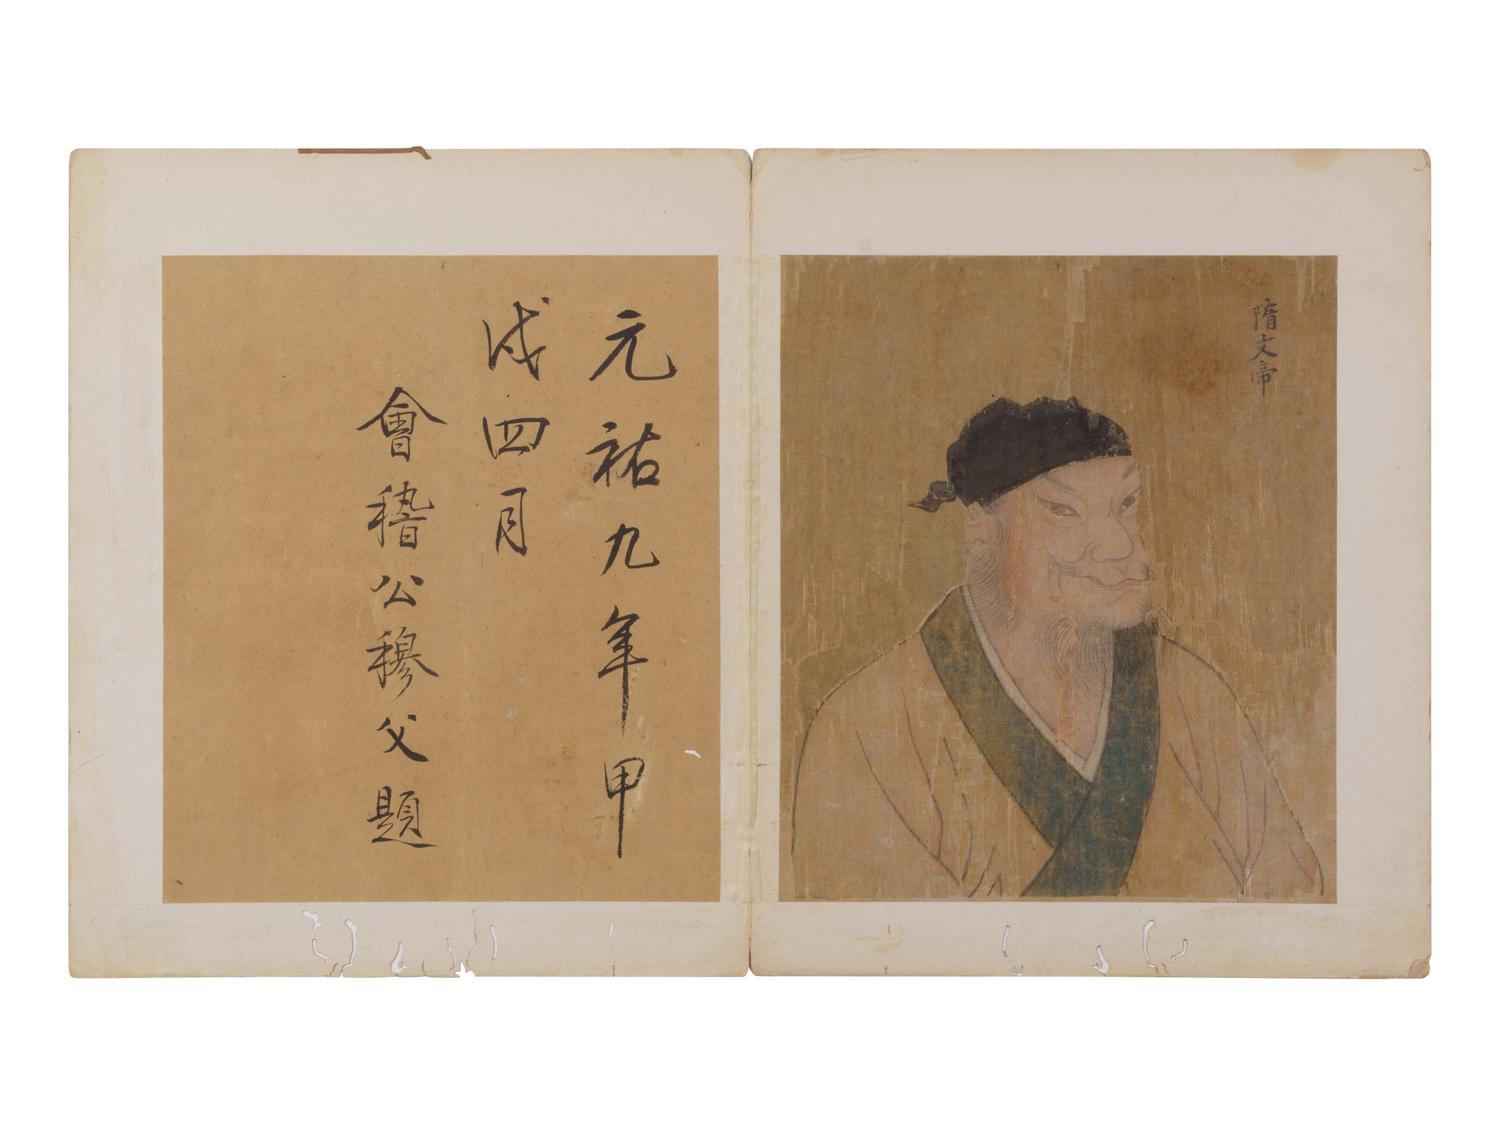 隋文帝
元祐九年甲
戌四月
會稽公穆父題